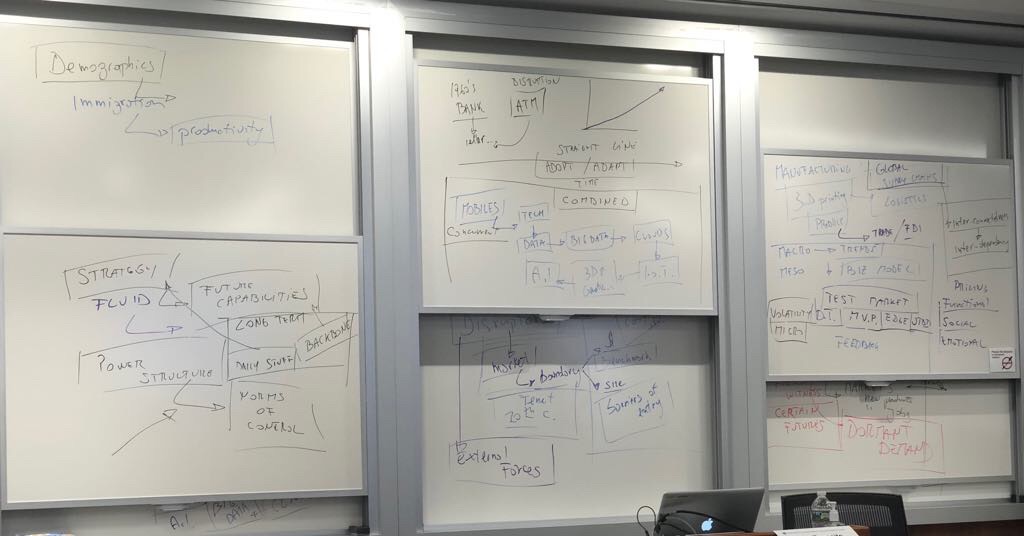 Demographics
Immigration
productivity
STRATEGY
FLUID
FUTURE
CAPABILITIES
LONG TERM
BACKBONE
DAILY STUFF
POWER
STRUCTURE
NORMS
OF
CONTROL
A.I.
BIG
DATA
1960's
BANK
DISRUPTION
ATM
inter...
STRAIGHT LINE
ADOPT / ADAPT
TIME
COMBINED
MOBILES
Concurrent
TECH
DATA
BIG DATA
CLOUDS
A.I.
3DP
I.O.T.
Disruption
market
boundary
$
Benchmark
size
Tenet
20th C.
Sources of
entry
External
Forces
MANUFACTURING
GLOBAL
SUPPLY CHAINS
3D printing
LOGISTICS
PRODUCE
TRADE / FDI
MACRO
TRENDS
MESO
BIZ MODEL
inter-connectedness
inter-dependency
TEST MARKET
VOLATILITY
MICRO
D.T.
M.V.P.
EDGE
FEEDBACK
PRICING
Functional
SOCIAL
EMOTIONAL
WITNESS
CERTAIN
FUTURES
new products
DORMANT
DEMAND